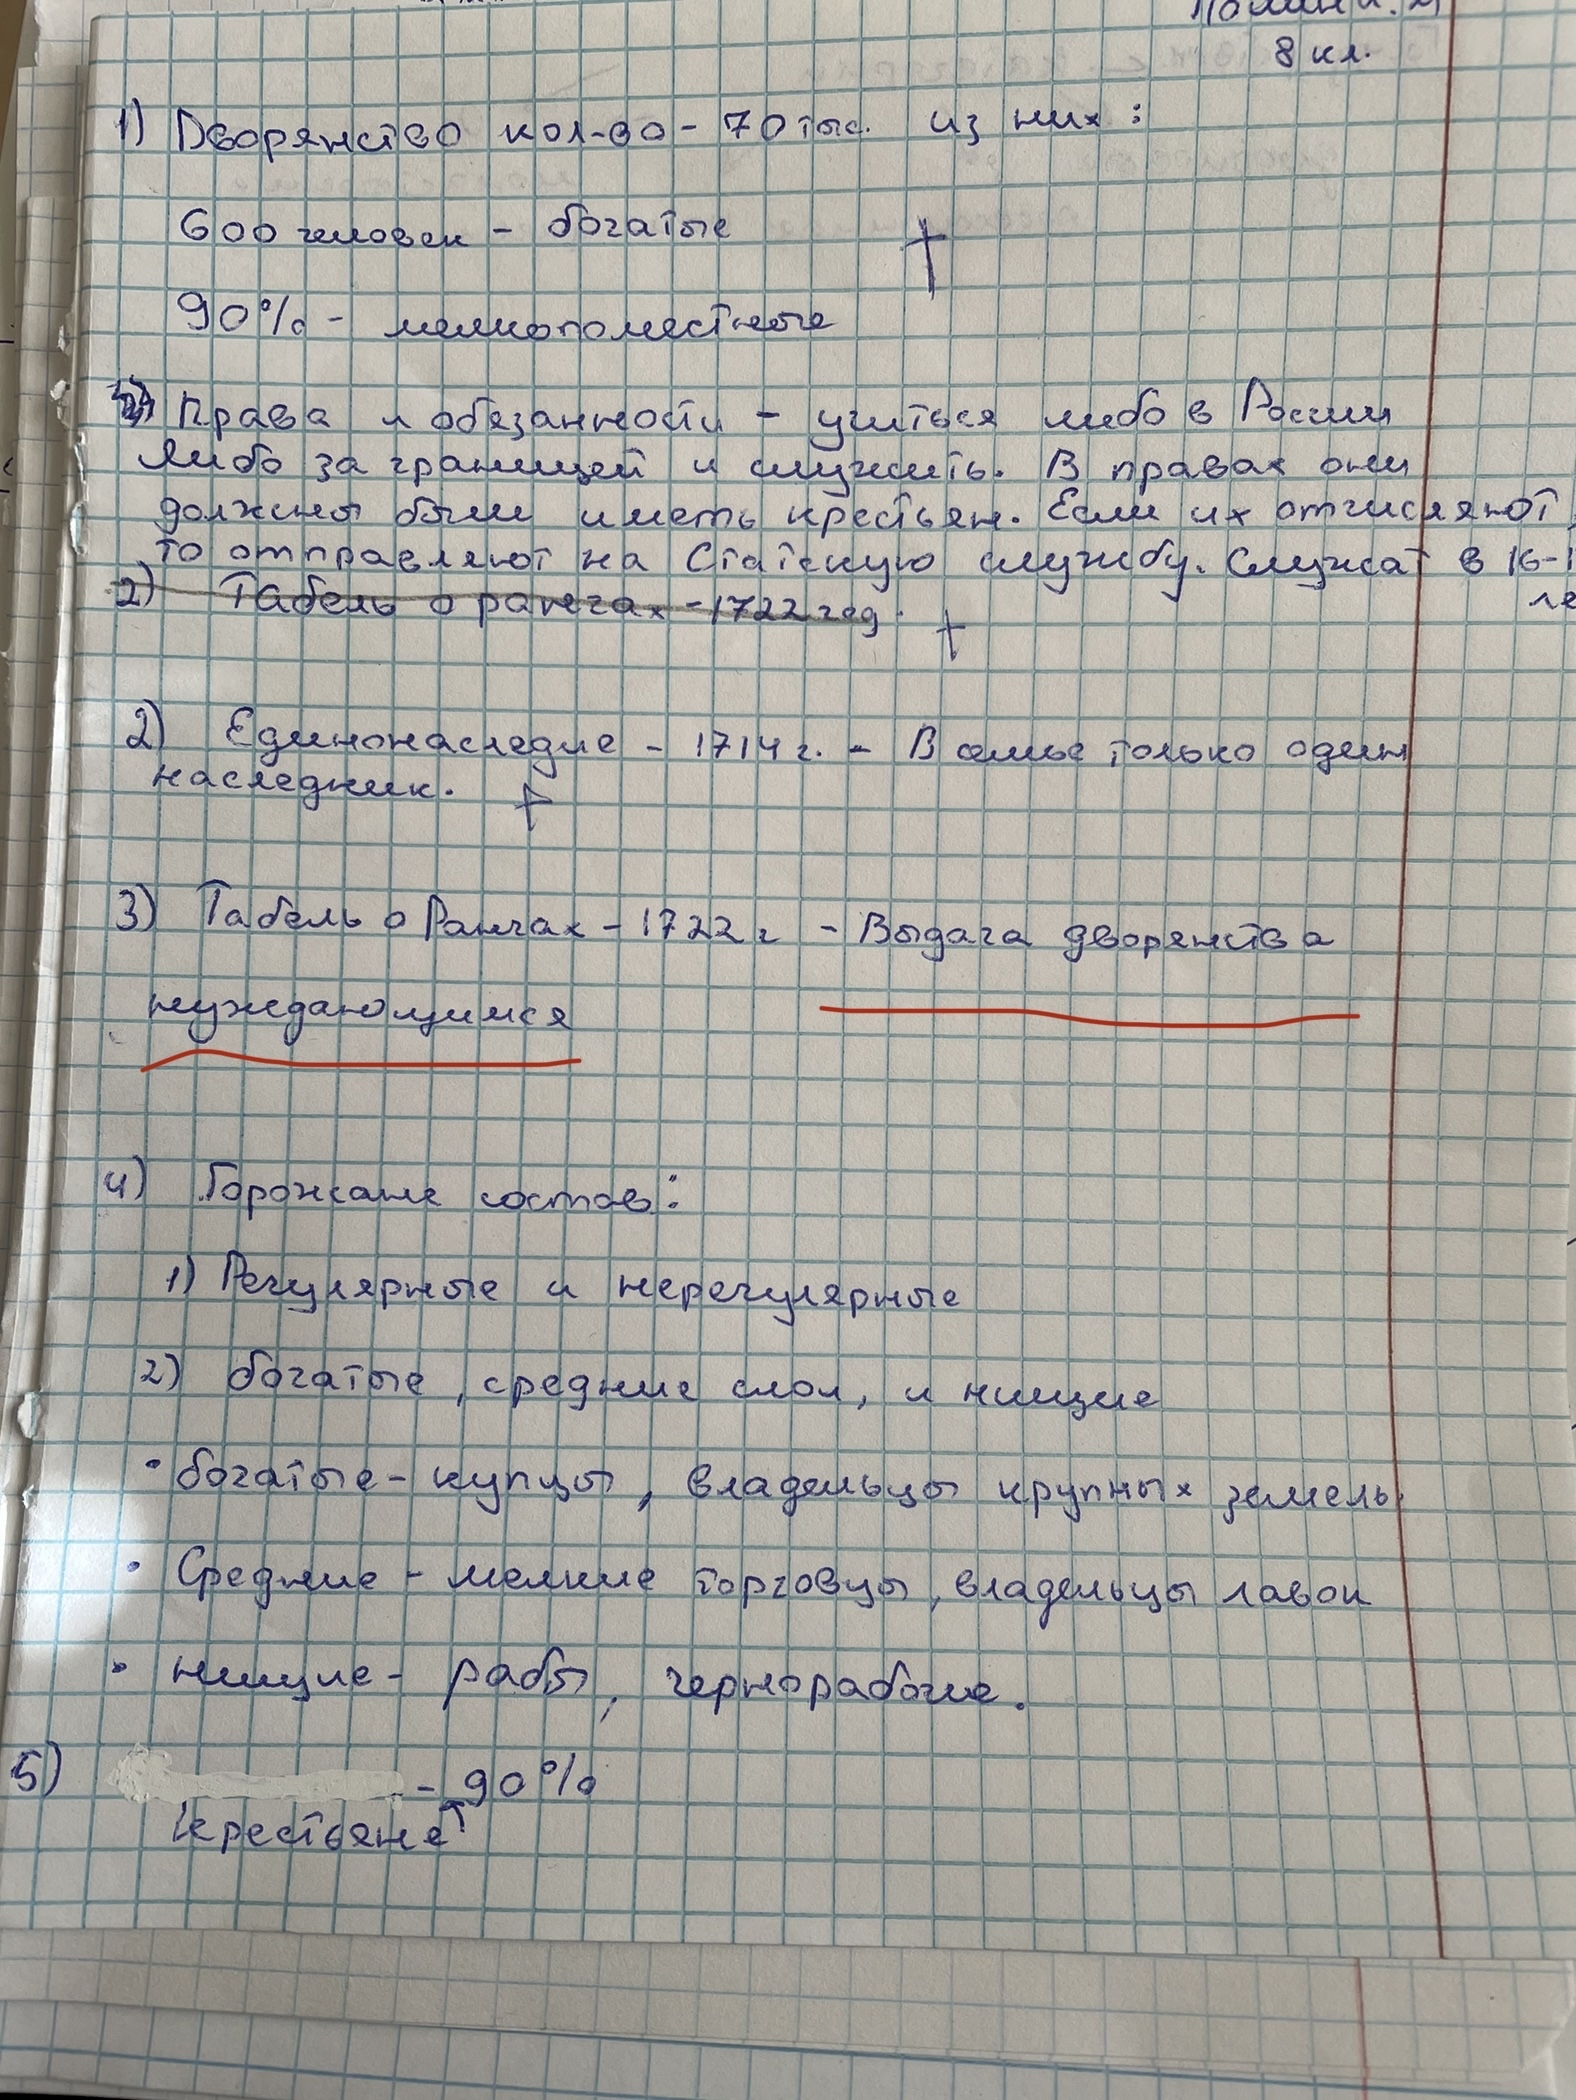 8 кл.
1) Дворянство кол-во - 70 тыс. из них:
600 человек - богатые
90% - мелкопоместные
Права и обязанности - учиться либо в России
либо за границей и служить. В правах они
должны были иметь крестьян. Если их отчисляют,
то отправляют на Статскую службу. Служат в 16-1
ле
2) Табель о рангах - 1722 год.
2) Единонаследие - 1714 г. - В семье только один
наследник.
3) Табель о Рангах - 1722 г - Выдача дворянства
нуждающимся
4) Горожане состав:
1) Регулярные и нерегулярные
2) богатые, средние слои, и нищие
· богатые - купцы, владельцы крупных земель.
· Средние - мелкие торговцы, владельцы лавок
· нищие - рабы, чернорабочие.
5) - 90%
Крестьяне